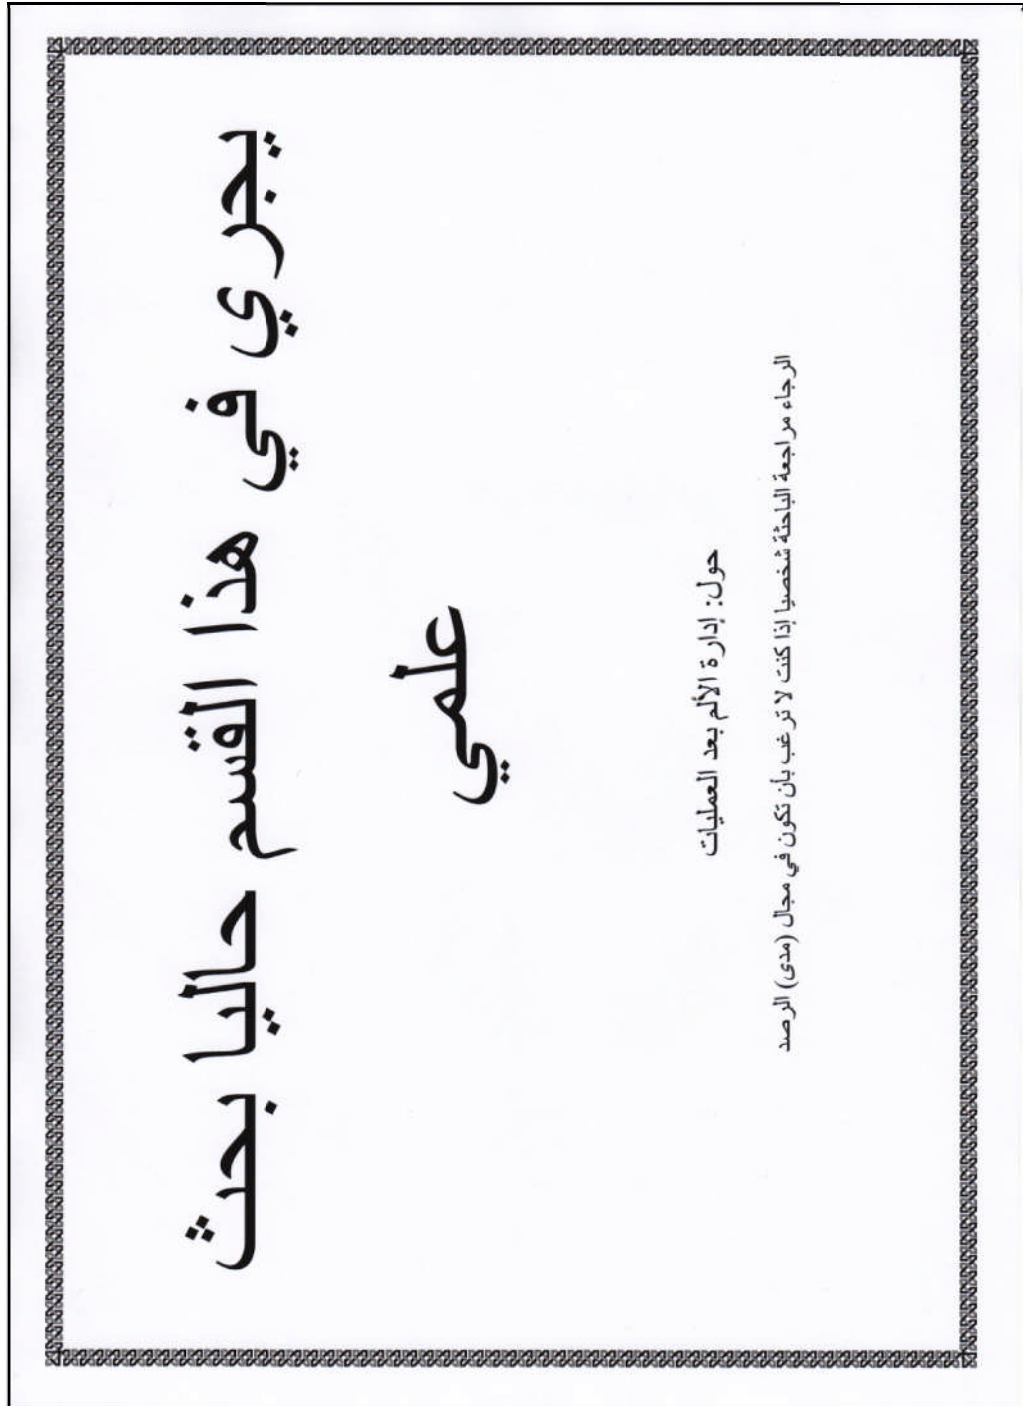 يجري في هذا القسم حاليا بحث
علمي
حول: إدارة الألم بعد العمليات
الرجاء مراجعة الباحثة شخصيا إذا كنت لا ترغب بأن تكون في مجال (مدى) الرصد